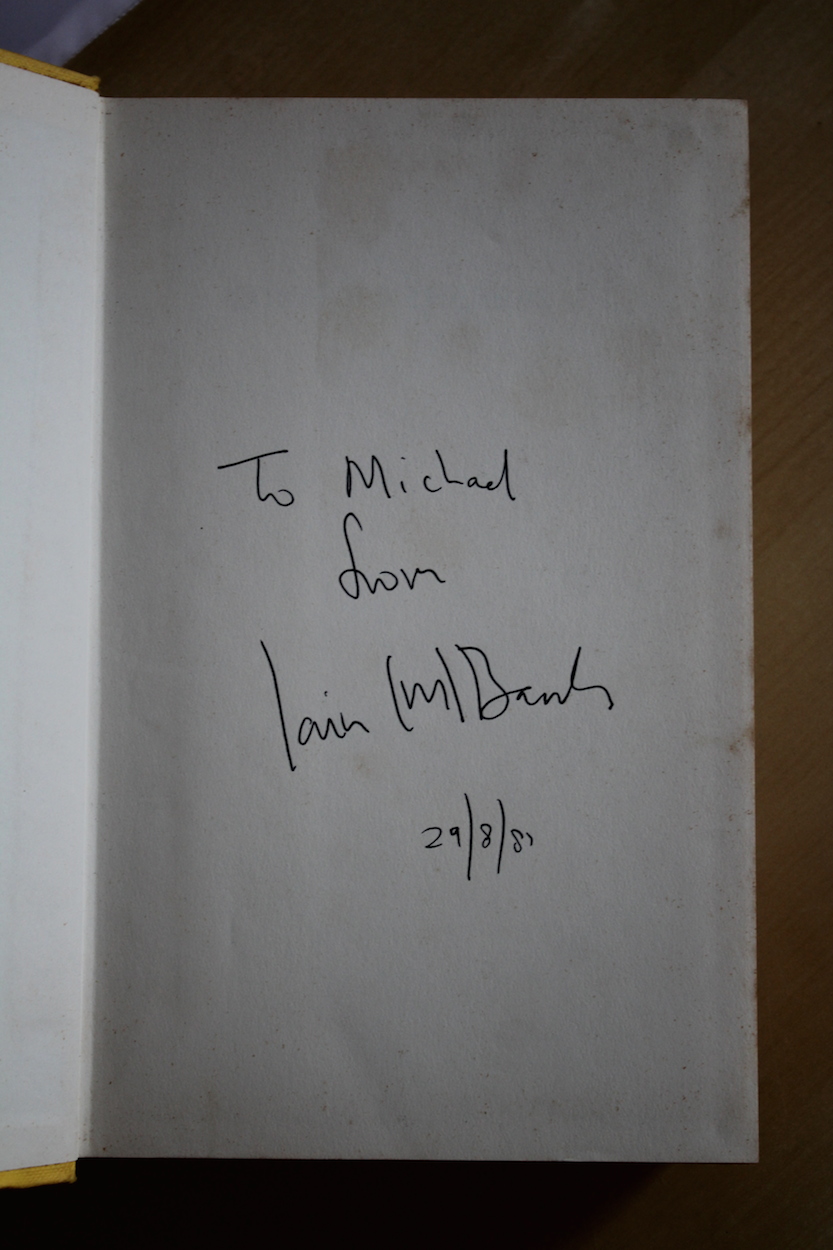 To Michael
from
Iain (M) Banks
29/8/87